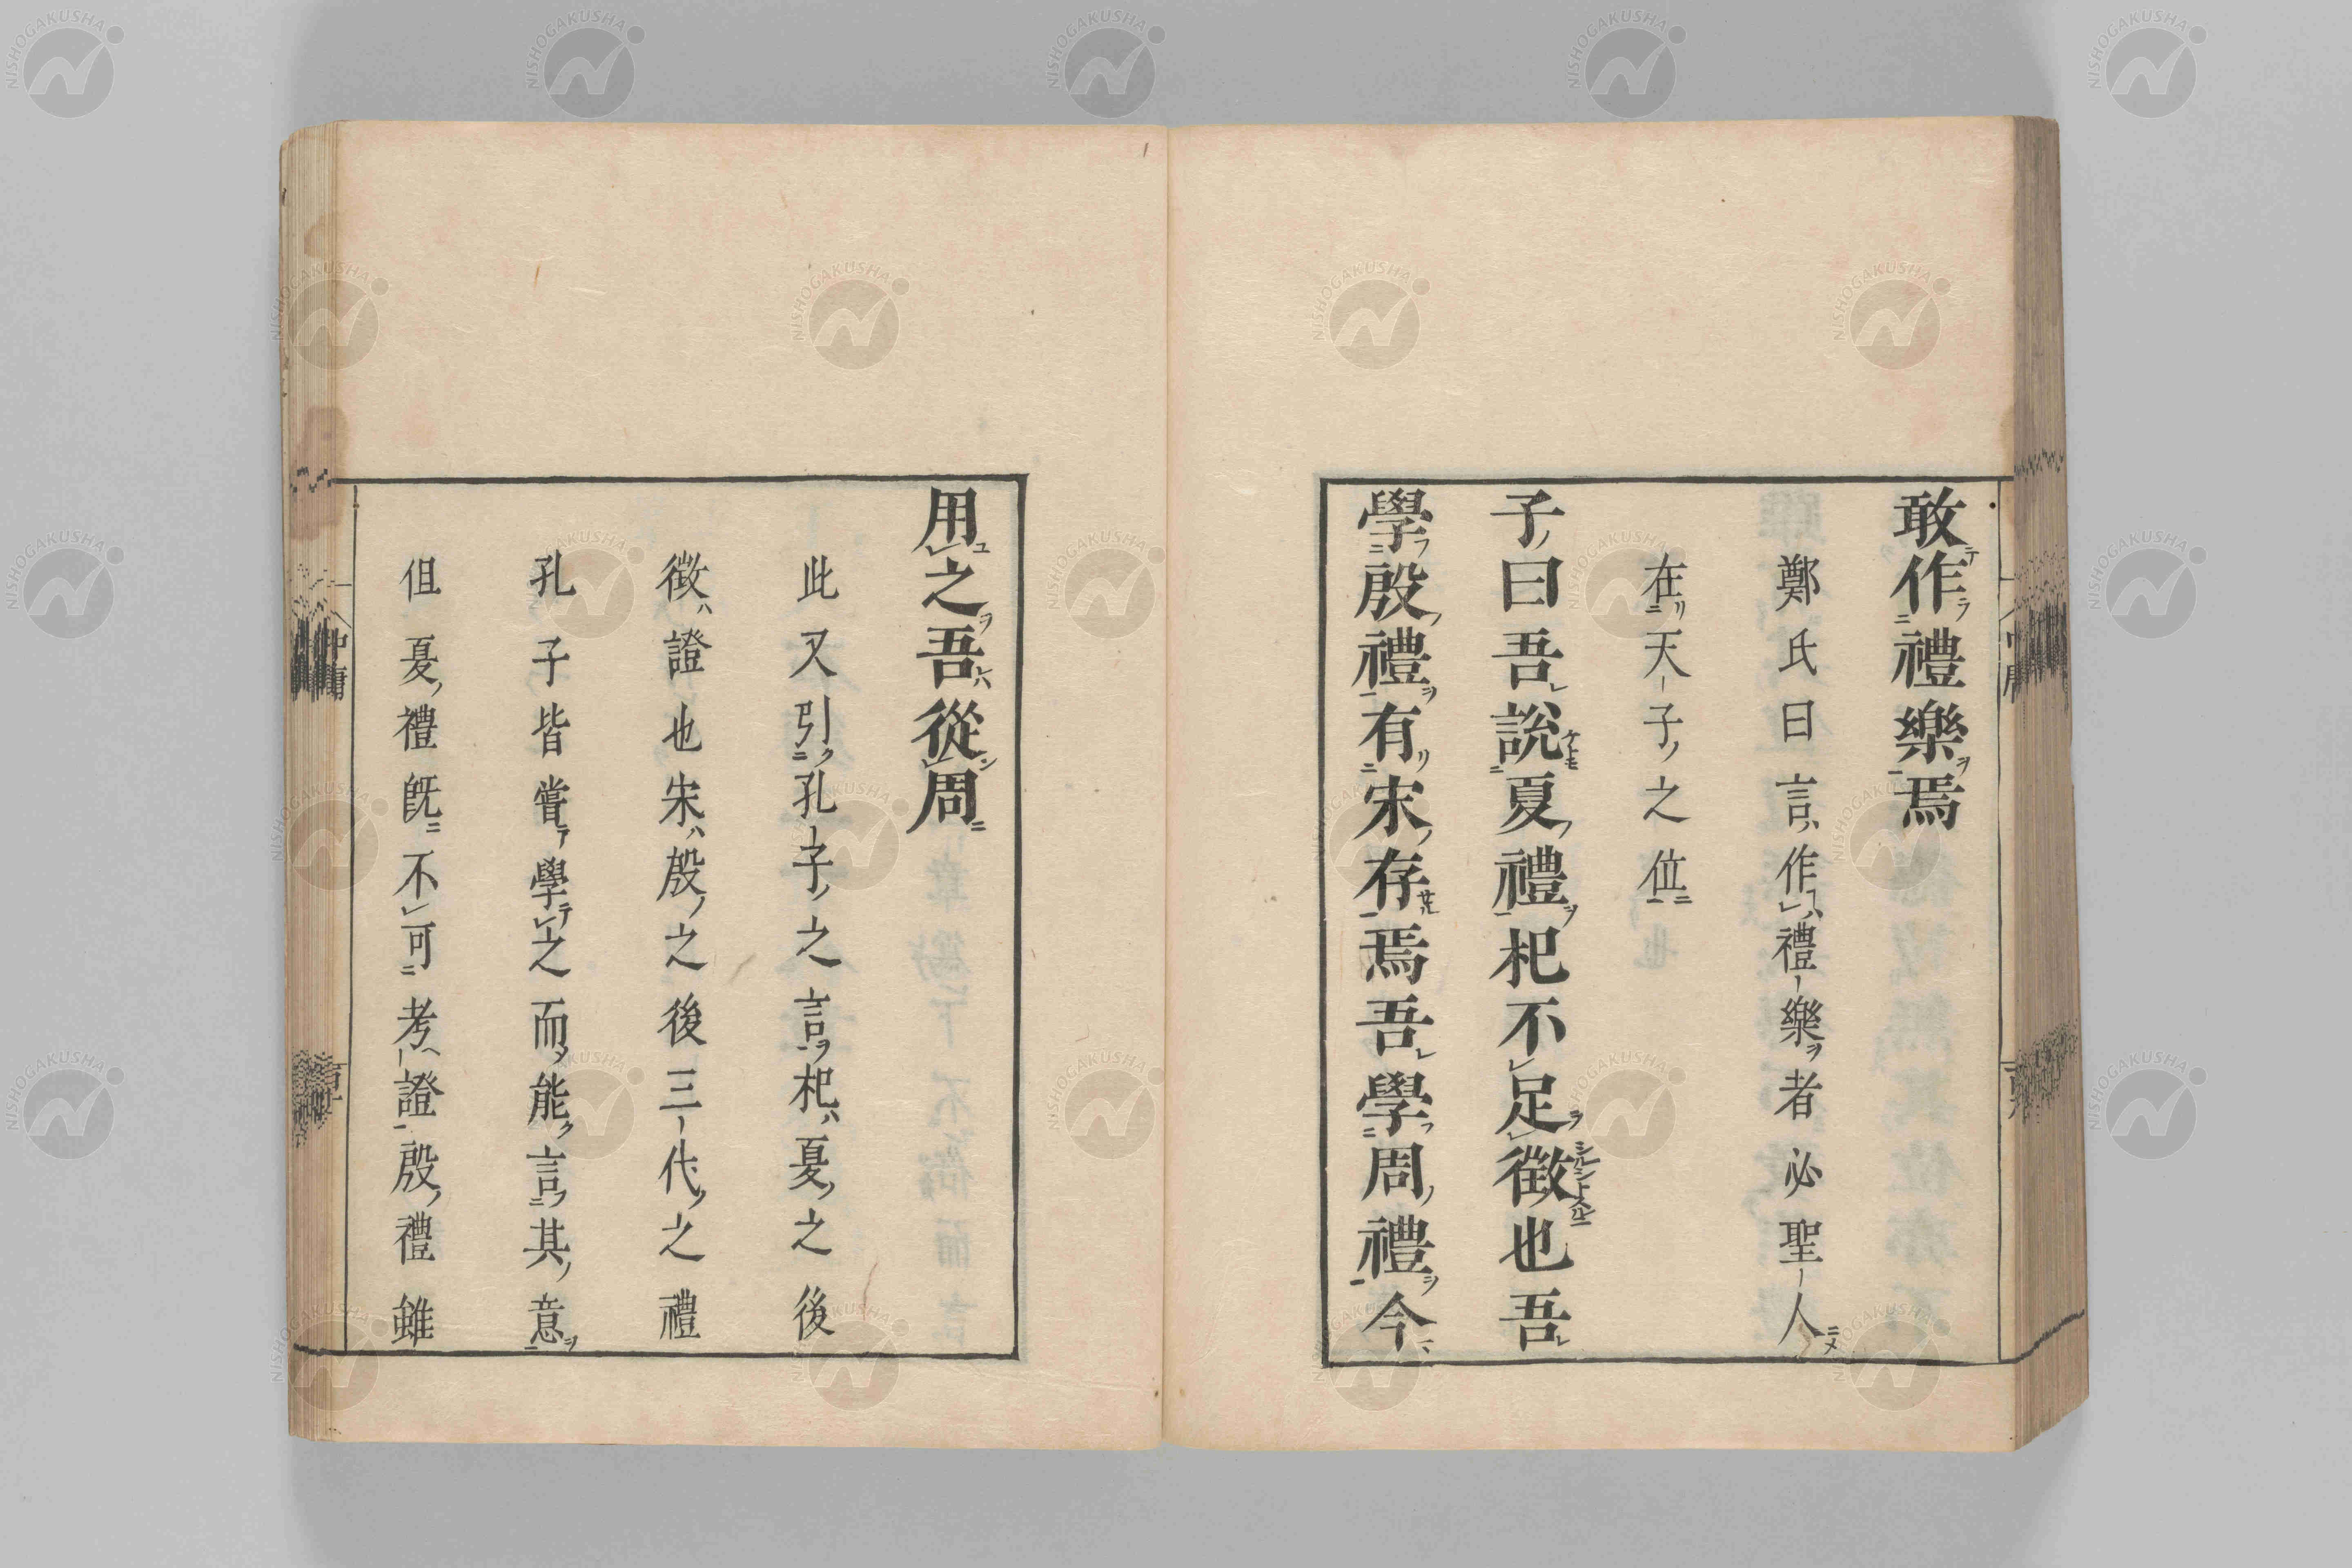 敢作禮樂焉
鄭氏曰言作禮樂者必聖人
在天子之位
子曰吾說夏禮杞不足徵也吾
學殷禮有宋存焉吾學周禮今
用之吾從周
此又引孔子之言杞夏之後
徵證也宋殷之後三代之禮
孔子皆嘗學之而能言其意
但夏禮旣不可考證殷禮雖
中庸
NISHOGAKUSHA